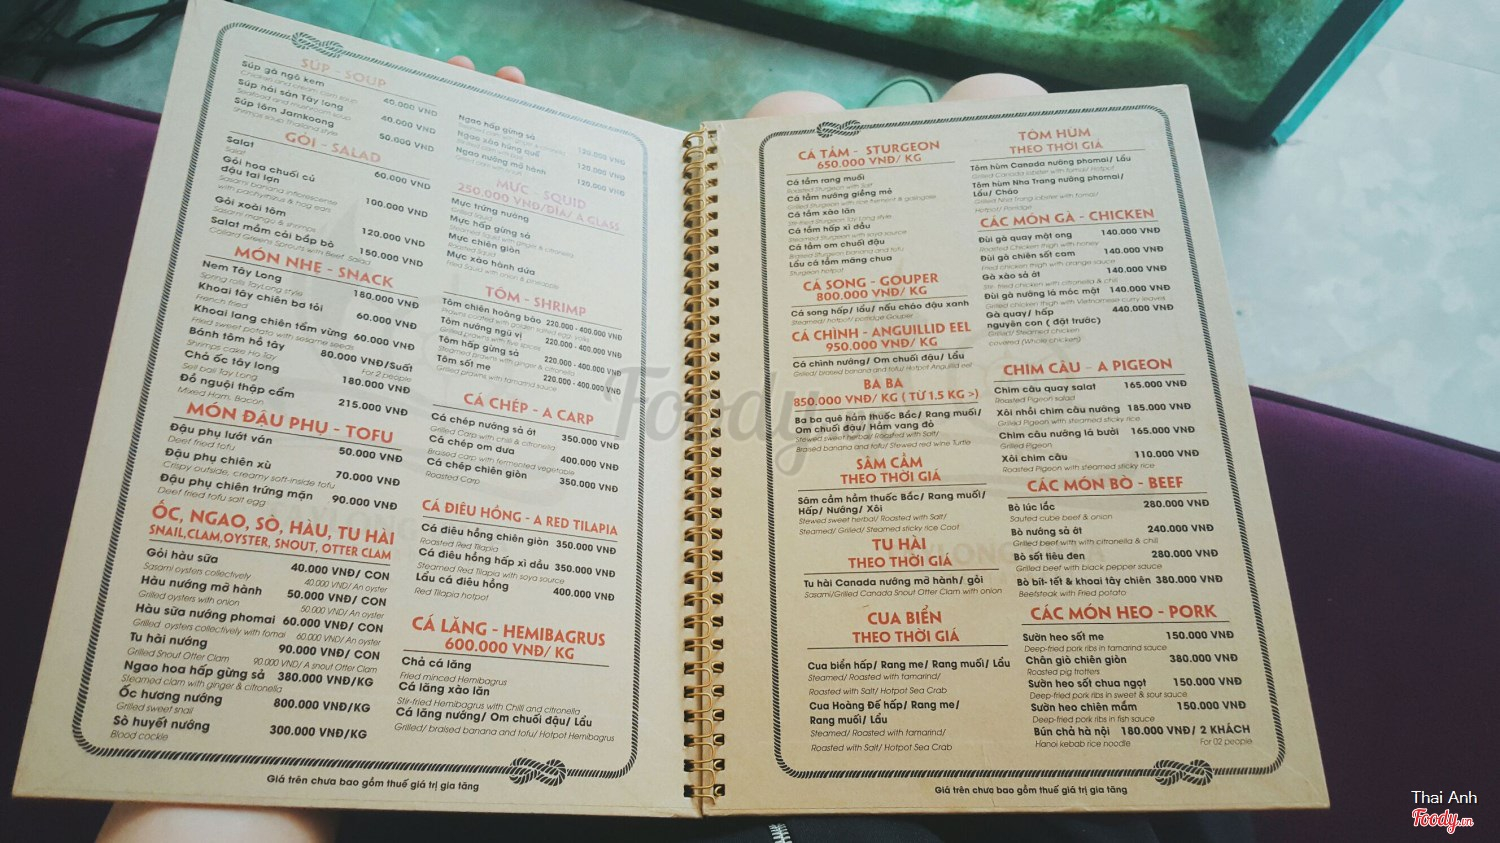 SÚP - SOUP
Súp gà ngô kem 40.000 VNĐ
Chicken and cream corn soup
Súp hải sản Tây long 40.000 VNĐ
Seafood and mushroom soup
Súp tôm Jamkoong 50.000 VNĐ
Shrimps soup Thailand style
GỎI - SALAD
Salat 60.000 VNĐ
Salat
Gỏi hoa chuối củ
đậu tai lợn 100.000 VNĐ
Sasami banana inflorescense
with pachyrhizus & hog ears
Gỏi xoài tôm 120.000 VNĐ
Sasami mango & shrimps
Salat mầm cải bắp bò 150.000 VNĐ
Collard Greens Sprouts with Beef Salad
MÓN NHẸ - SNACK
Nem Tây Long 180.000 VNĐ
Spring rolls TayLong style
Khoai tây chiên bơ tỏi 60.000 VNĐ
French fried
Khoai lang chiên tẩm vừng 60.000 VNĐ
Fried sweet potato with sesame seeds
Bánh tôm hồ tây 80.000 VNĐ/Suất
Shrimps cake Ho Tay For 2 people
Chả ốc tây long 180.000 VNĐ
Sell ball Tay Long
Đồ nguội thập cẩm 215.000 VNĐ
Mixed Ham, Bacon
MÓN ĐẬU PHỤ - TOFU
Đậu phụ lướt ván 50.000 VNĐ
Deef fried tofu
Đậu phụ chiên xù 70.000 VNĐ
Crispy outside, creamy soft-inside tofu
Đậu phụ chiên trứng mặn 90.000 VNĐ
Deef fried tofu salt egg
ỐC, NGAO, SÒ, HÀU, TU HÀI
SNAIL,CLAM,OYSTER, SNOUT, OTTER CLAM
Gỏi hàu sữa 40.000 VNĐ/ CON
Sasami oysters collectively 40.000 VNĐ/ An oyster
Hàu nướng mỡ hành 50.000 VNĐ/ CON
Grilled oysters with onion 50.000 VNĐ/ An oyster
Hàu sữa nướng phomai 60.000 VNĐ/ CON
Grilled oysters collectively with fomai 60.000 VNĐ/ An oyster
Tu hài nướng 90.000 VNĐ/ CON
Grilled Snout Otter Clam 90.000 VNĐ/ A snout Otter Clam
Ngao hoa hấp gừng sả 380.000 VNĐ/KG
Steamed clam with ginger & citronella
Ốc hương nướng 800.000 VNĐ/KG
Grilled sweet snail
Sò huyết nướng 300.000 VNĐ/KG
Blood cockle
Ngao hấp gừng sả 120.000 VNĐ
Ngao xào húng quế 120.000 VNĐ
Ngao nướng mỡ hành 120.000 VNĐ
MỰC - SQUID
250.000 VNĐ/DĨA/ A CLASS
Mực trứng nướng
Grilled squid
Mực hấp gừng sả
Steamed squid with ginger & citronella
Mực chiên giòn
Roasted squid
Mực xào hành dứa
Fried Squid with onion & pineapple
TÔM - SHRIMP
Tôm chiên hoàng bào 220.000 - 400.000 VNĐ
Prawns crafted with golden salted egg yolks
Tôm nướng ngũ vị 220.000 - 400.000 VNĐ
Grilled prawns with five spices
Tôm hấp gừng sả 220.000 - 400.000 VNĐ
Steamed prawns with ginger & citronella
Tôm sốt me 220.000 - 400.000 VNĐ
Grilled prawns with tamarind sauce
CÁ CHÉP - A CARP
Cá chép nướng sả ớt 350.000 VNĐ
Grilled Carp with chili & citronella
Cá chép om dưa 400.000 VNĐ
Braised carp with fermented vegetable
Cá chép chiên giòn 350.000 VNĐ
Roasted Carp
CÁ DIÊU HỒNG - A RED TILAPIA
Cá diêu hồng chiên giòn 350.000 VNĐ
Roasted Red Tilapia
Cá diêu hồng hấp xì dầu 350.000 VNĐ
Steamed Red Tilapia with soya source
Lẩu cá diêu hồng 400.000 VNĐ
Red Tilapia hotpot
CÁ LĂNG - HEMIBAGRUS
600.000 VNĐ/ KG
Chả cá lăng
Fried minced Hemibagrus
Cá lăng xào lăn
Stir-fried Hemibagrus with Chili and citronella
Cá lăng nướng/ Om chuối đậu/ Lẩu
Grilled/ braised banana and tofu/ Hotpot Hemibagrus
Giá trên chưa bao gồm thuế giá trị gia tăng
CÁ TẦM - STURGEON
650.000 VNĐ/ KG
Cá tầm rang muối
Roasted Sturgeon with Salt
Cá tầm nướng giềng mẻ
Grilled Sturgeon with rice ferment & galingale
Cá tầm xào lăn
Stir-fried Sturgeon Tay Long style
Cá tầm hấp xì dầu
Steamed Sturgeon with soya source
Cá tầm om chuối đậu
Braised Sturgeon banana and tofu
Lẩu cá tầm măng chua
Sturgeon hotpot
CÁ SONG - GOUPER
800.000 VNĐ/ KG
Cá song hấp/ lẩu/ nấu cháo đậu xanh
Steamed/ hotpot/ porridge Gouper
CÁ CHÌNH - ANGUILLID EEL
950.000 VNĐ/ KG
Cá chình nướng/ Om chuối đậu/ Lẩu
Grilled/ braised banana and tofu/ Hotpot Anguillid eel
BA BA
850.000 VNĐ/ KG ( TỪ 1.5 KG >)
Ba ba quê hầm thuốc Bắc/ Rang muối/
Om chuối đậu/ Hầm vang đỏ
Stewed sweet herbal/ Roasted with Salt/
Braised banana and tofu/ Stewed red wine Turtle
SÂM CẦM
THEO THỜI GIÁ
Sâm cầm hầm thuốc Bắc/ Rang muối/
Hấp/ Nướng/ Xôi
Stewed sweet herbal/ Roasted with Salt/
Steamed/ Grilled/ Steamed sticky rice Coot
TU HÀI
THEO THỜI GIÁ
Tu hài Canada nướng mỡ hành/ gỏi
Sasami/Grilled Canada Snout Otter Clam with onion
CUA BIỂN
THEO THỜI GIÁ
Cua biển hấp/ Rang me/ Rang muối/ Lẩu
Steamed/ Roasted with tamarind/
Roasted with Salt/ Hotpot Sea Crab
Cua Hoàng Đế hấp/ Rang me/
Rang muối/ Lẩu
Steamed/ Roasted with tamarind/
Roasted with Salt/ Hotpot Sea Crab
TÔM HÙM
THEO THỜI GIÁ
Tôm hùm Canada nướng phomai/ Lẩu
Grilled Canada lobster with fomai/ Hotpot
Tôm hùm Nha Trang nướng phomai/
Lẩu/ Cháo
Grilled Nha Trang lobster with fomai/
Hotpot/ Porridge
CÁC MÓN GÀ - CHICKEN
Đùi gà quay mật ong 140.000 VNĐ
Roasted Chicken thigh with honey
Đùi gà chiên sốt cam 140.000 VNĐ
Fried chicken thigh with orange sauce
Gà xào sả ớt 140.000 VNĐ
Stir- fried chicken with citronella & chili
Đùi gà nướng lá móc mật 140.000 VNĐ
Grilled chicken thigh with Vietnamese curry leaves
Gà quay/ hấp 440.000 VNĐ
nguyên con ( đặt trước)
Grilled/ Steamed chicken
covered (Whole chicken)
CHIM CÂU - A PIGEON
Chim câu quay salat 165.000 VNĐ
Roasted Pigeon salad
Xôi nhồi chim câu nướng 185.000 VNĐ
Grilled Pigeon with steamed sticky rice
Chim câu nướng lá bưởi 165.000 VNĐ
Grilled Pigeon
Xôi chim câu 110.000 VNĐ
Roasted Pigeon with steamed sticky rice
CÁC MÓN BÒ - BEEF
Bò lúc lắc 280.000 VNĐ
Sauted cube beef & onion
Bò nướng sả ớt 240.000 VNĐ
Grilled beef with citronella & chili
Bò sốt tiêu đen 280.000 VNĐ
Grilled beef with black pepper sauce
Bò bít- tết & khoai tây chiên 380.000 VNĐ
Beefsteak with Fried potato
CÁC MÓN HEO - PORK
Sườn heo sốt me 150.000 VNĐ
Deep-fried pork ribs in tamarind sauce
Chân giò chiên giòn 380.000 VNĐ
Roasted pig trotters
Sườn heo sốt chua ngọt 150.000 VNĐ
Deep-fried pork ribs in sweet & sour sauce
Sườn heo chiên mắm 150.000 VNĐ
Deep-fried pork ribs in fish sauce
Bún chả hà nội 180.000 VNĐ/ 2 KHÁCH
Hanoi kebab rice noodle For 02 people
Giá trên chưa bao gồm thuế giá trị gia tăng
Foody.vn
Thai Anh
Foody.vn